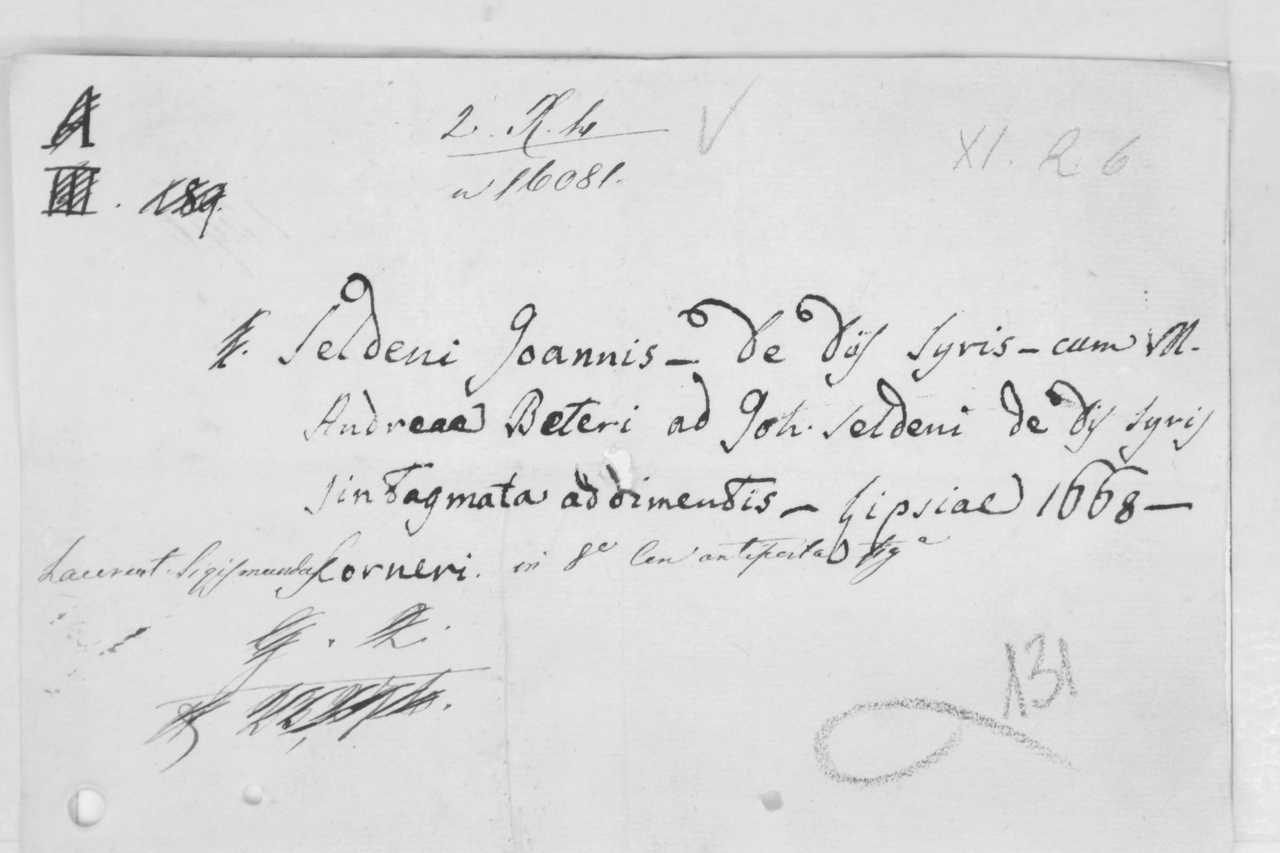 A
III. 189.
2. R. 4
n 16081.
XI. R 6
Seldeni Joannis - de dijs syris - cum M.
Andreae Beteri ad Joh. Seldeni de dijs syris
sintagmata additmentis - Lipsiae 1668 -
Laurent. Sigismundas Corneri. in 8º Con antiporta
131